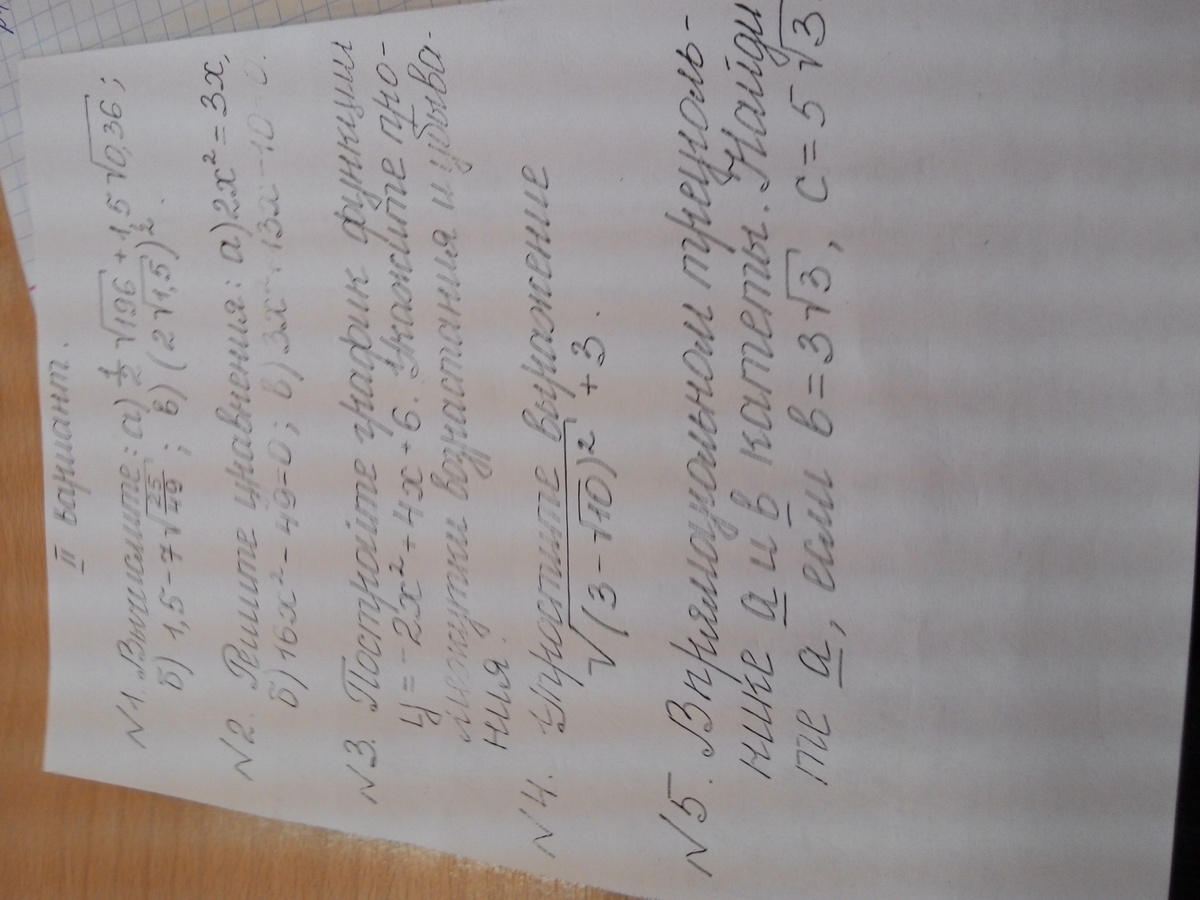 II вариант.
N1. Вычислите: а) 1/2 √196 + 1,5 √0,36;
б) 1,5 - 7√25/49; в) (2√1,5)².
N2. Решите уравнения: а) 2x² = 3x,
б) 16x² - 49 = 0; в) 3x² + 13x - 10 = 0.
N3. Постройте график функции
y = -2x² + 4x + 6. Укажите про-
межутки возрастания и убыва-
ния.
N4. Упростите выражение
√(3 - √10)² + 3.
N5. В прямоугольном треуголь-
нике а и в катеты. Найди
те а, если в = 3√3, с = 5√3.